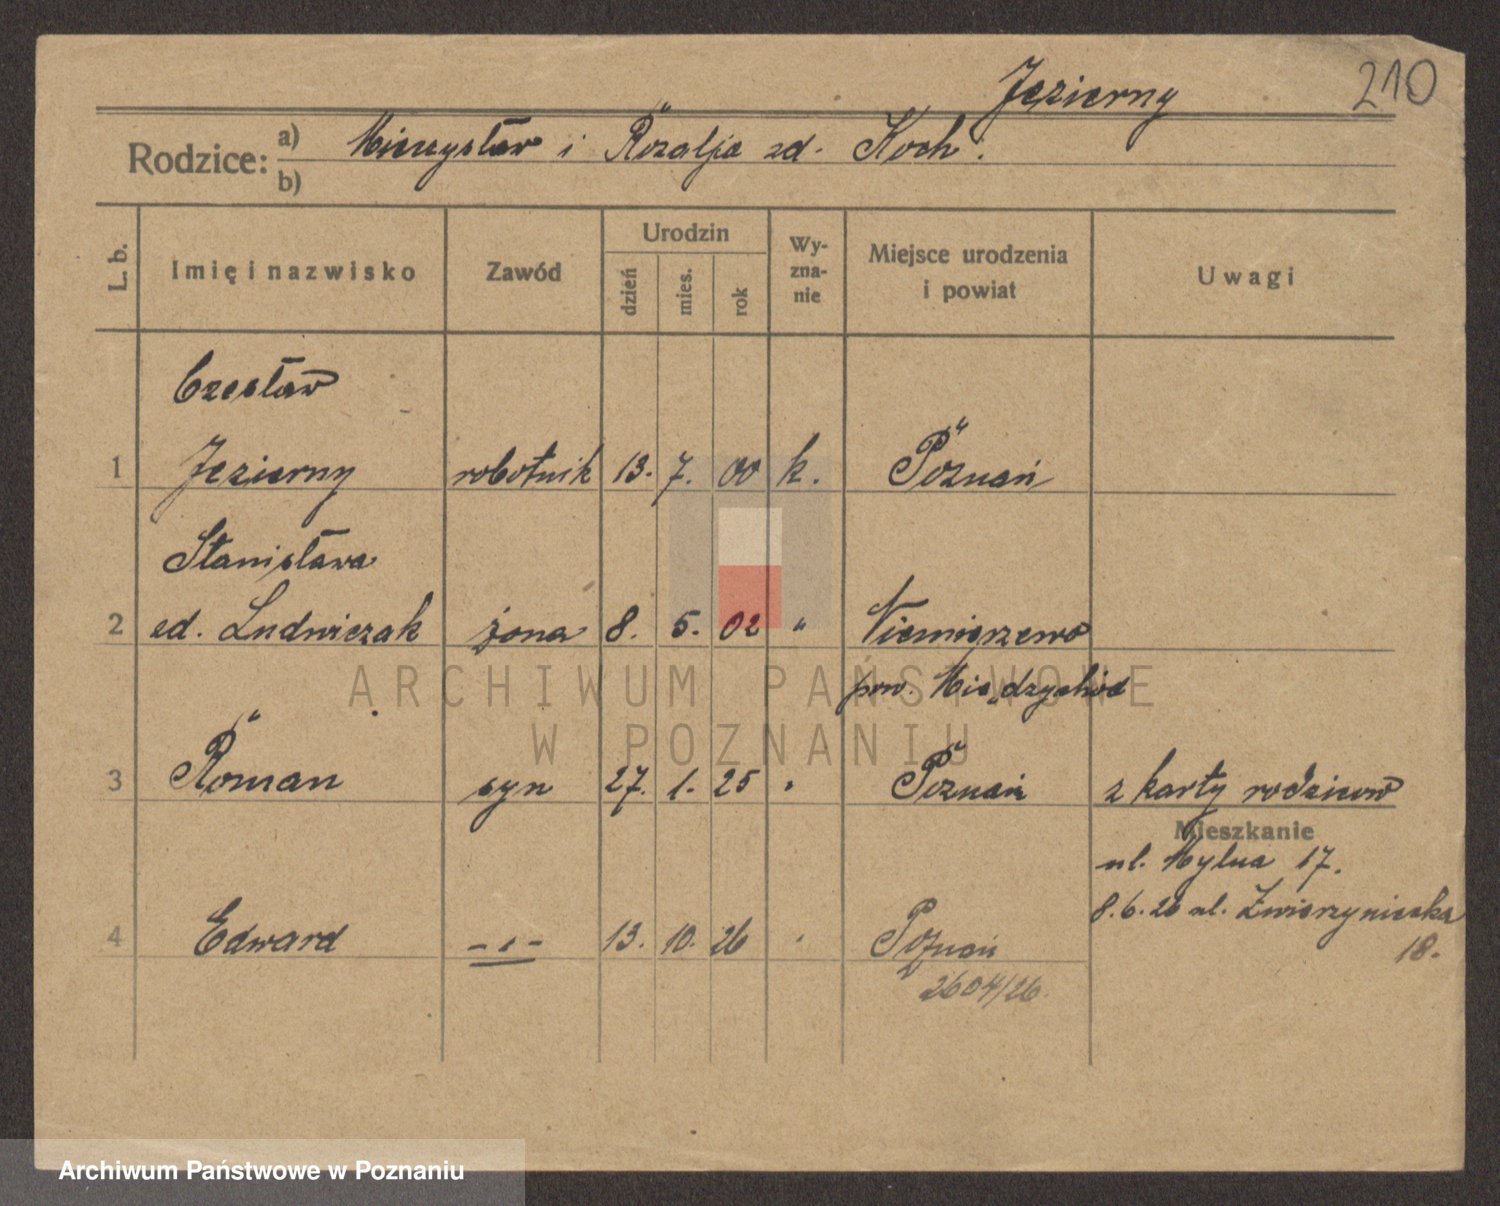 Jezierny 210
Rodzice: a) Mieczysław i Rozalja zd. Koch.
b)
L. b. Imię i nazwisko Zawód Urodzin dzień mies. rok Wyznanie Miejsce urodzenia i powiat Uwagi
Czesław
1 Jezierny robotnik 13. 7. 00 k. Poznań
Stanisława
2 zd. Ludwiczak żona 8. 5. 02 " Niemierzewo
pow. Międzychód
3 Roman syn 27. 1. 25 " Poznań z karty rodziców
Mieszkanie
ul. Mylna 17.
8.6.26 ul. Zwierzyniecka
4 Edward -"- 13. 10. 26 " Poznań 18.
2604/26.
ARCHIWUM PAŃSTWOWE
W POZNANIU
Archiwum Państwowe w Poznaniu